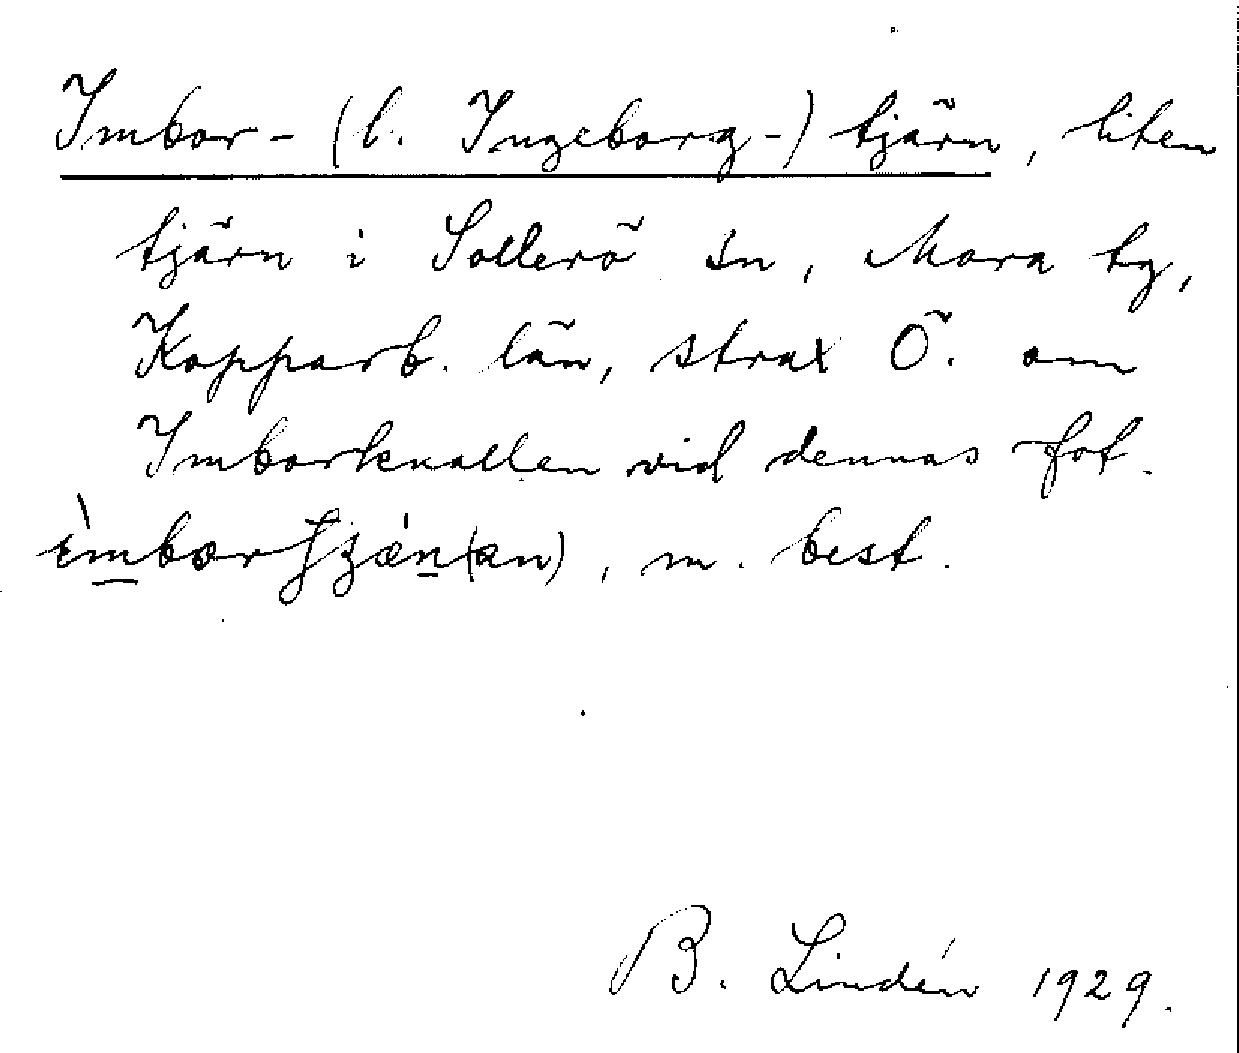 Imbor- (l. Ingeborg-) tjärn, liten
tjärn i Sollerö sn, Mora tg,
Kopparb. län, strax Ö. om
Imborknallen vid dennas fot.
, m. best.
B. Lindén 1929.